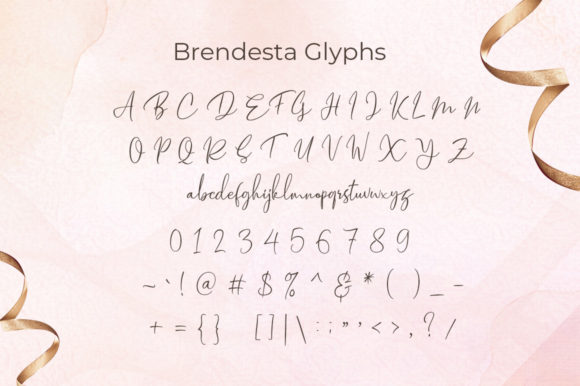 Brendesta Glyphs
A B C D E F G H I J K L M N
O P Q R S T U V W X Y Z
abcdefghijklmnopqrstuvwxyz
0 1 2 3 4 5 6 7 8 9
~ ` ! @ # $ % ^ & * ( ) _ -
+ = { } [ ] | \ : ; " ' < > , ? /